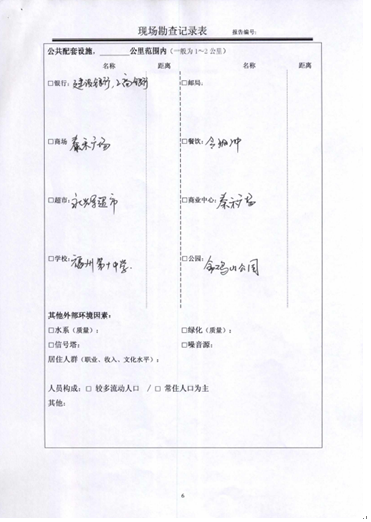 现场勘查记录表 报告编号:
公共配套设施,________公里范围内(一般为1~2公里)
名称 距离 名称 距离
□银行: 建设银行,工商银行 □邮局:
□商场 泰禾广场 □餐饮:
□超市: 永辉超市 □商业中心: 泰禾广场
□学校: 福州第十中学 □公园: 金鸡山公园
其他外部环境因素:
□水系(质量): □绿化(质量):
□信号塔: □噪音源:
居住人群(职业、收入、文化水平):
人员构成: □ 较多流动人口 / □ 常住人口为主
其他:
6